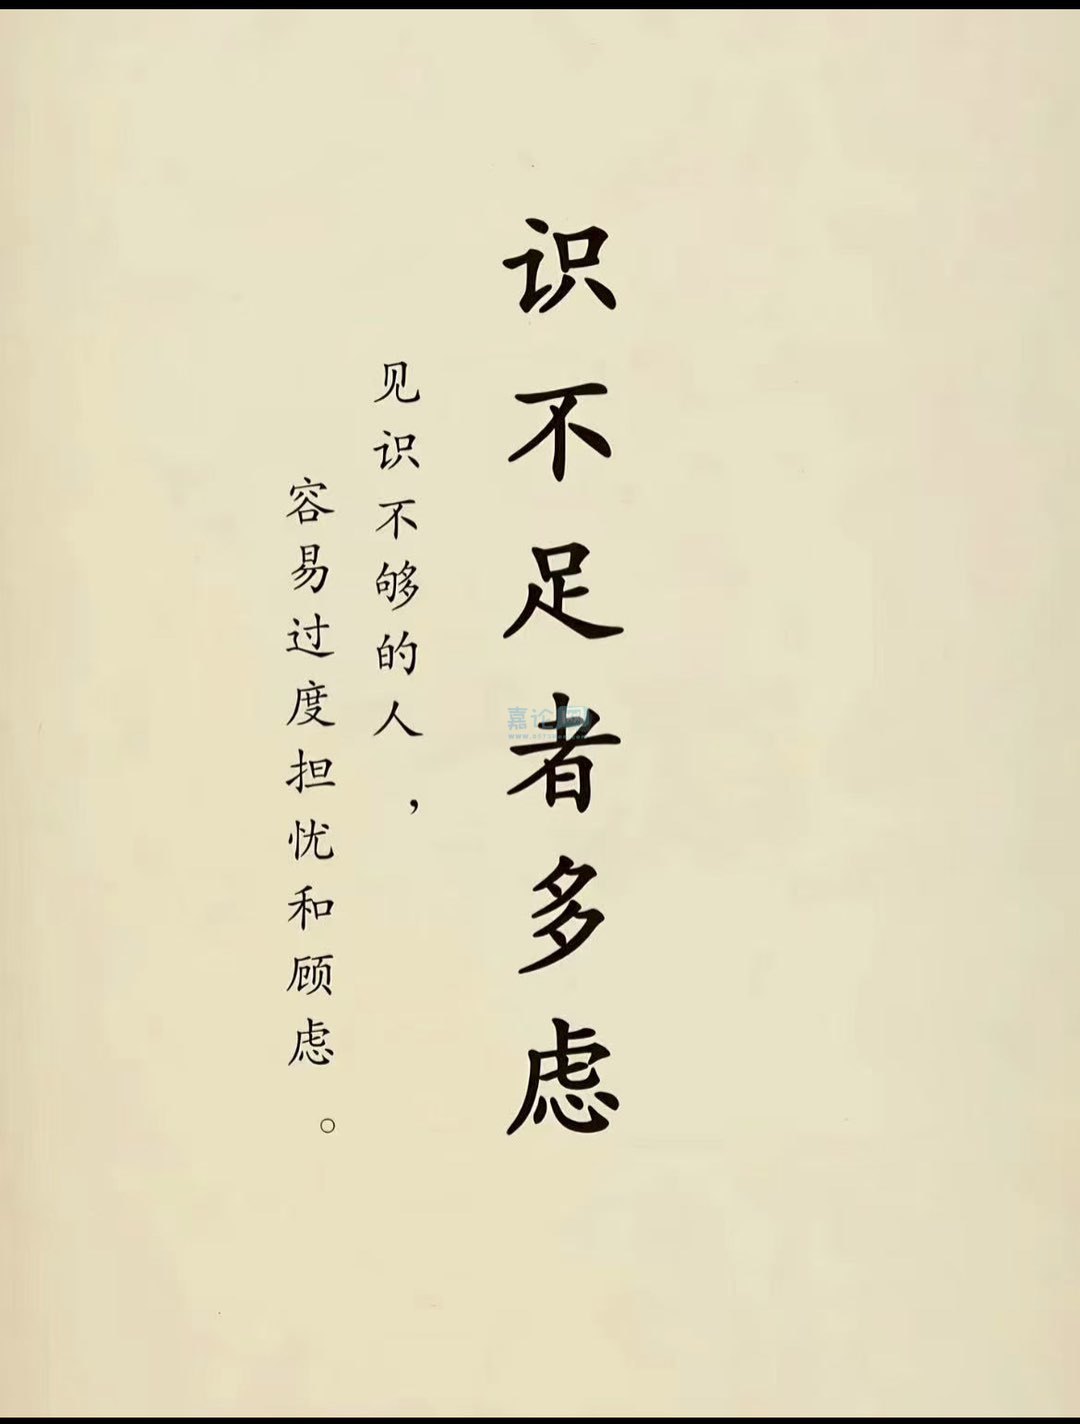 识不足者多虑
见识不够的人，
容易过度担忧和顾虑。
嘉论网